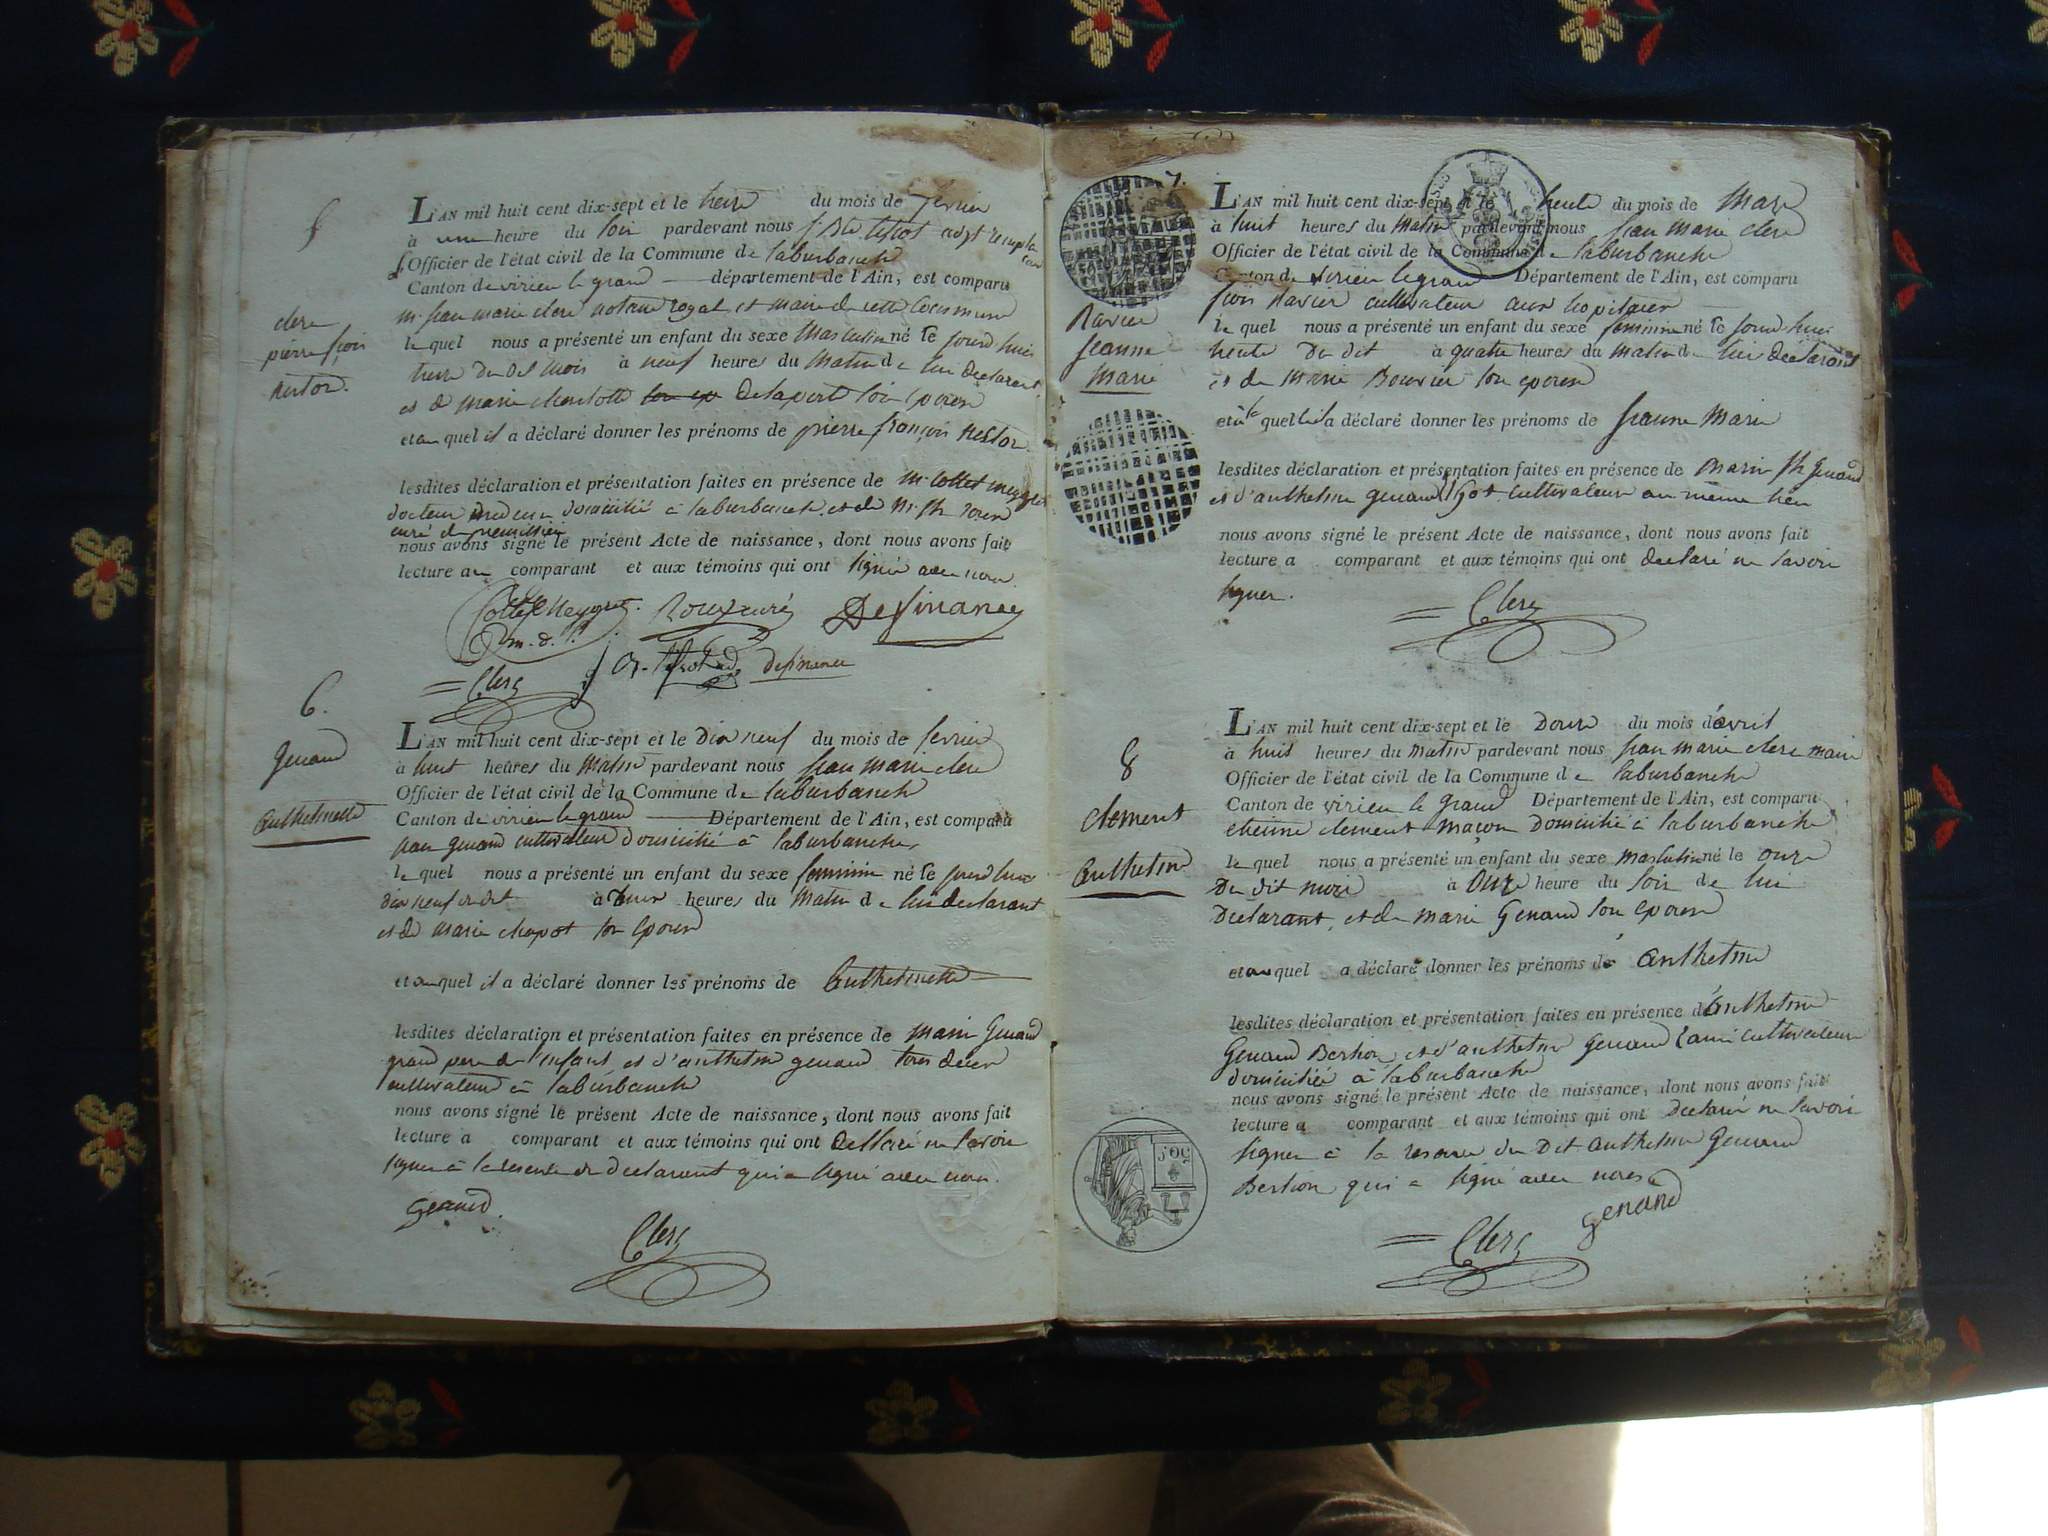 5
clerc
pierre fçois
nestor.
L'AN mil huit cent dix-sept et le treize du mois de fevrier
à une heure du soir pardevant nous
Officier de l'état civil de la Commune de laburbanche
Canton de virieu le grand département de l'Ain, est comparu
mr jean marie clerc notaire royal et maire de cette Commune
le quel nous a présenté un enfant du sexe Masculin né le jourd'hui
treize du dit mois à neuf heures du Matin de lui declarant
et de marie charlotte son ep Delaport son epouse
et au quel il a déclaré donner les prénoms de pierre françois Nestor
lesdites déclaration et présentation faites en présence de mr Collet meygret
docteur medecin domicilié à laburbanche et de Mr
curé de
nous avons signé le présent Acte de naissance, dont nous avons fait
lecture au comparant et aux témoins qui ont signé avec nous
Collet Meygret. Roux curé Definance
D. m. definance
Clerc
6.
Genand
Anthelmette
L'AN mil huit cent dix-sept et le Dix neuf du mois de fevrier
à huit heures du Matin pardevant nous jean marie clerc
Officier de l'état civil de la Commune de laburbanche
Canton de virieu le grand Département de l'Ain, est comparu
jean genand cultivateur domicilié à laburbanche,
le quel nous a présenté un enfant du sexe feminin né le jourd'hui
dix neuf du dit à heures du Matin de lui declarant
et de Marie chapot son epouse
et au quel il a déclaré donner les prénoms de Anthelmette
lesdites déclaration et présentation faites en présence de Marin Genand
grand pere de l'enfant et d'anthelme genand tous deux
cultivateurs à laburbanche
nous avons signé le présent Acte de naissance, dont nous avons fait
lecture a comparant et aux témoins qui ont declaré ne savoir
signer à la reserve du declarant qui a signé avec nous.
Genand.
Clerc
7.
Ravier
Jeanne
Marie
L'AN mil huit cent dix-sept et le trente du mois de Mars
à huit heures du Matin pardevant nous jean marie clerc
Officier de l'état civil de la Commune de laburbanche
Canton de virieu le grand Département de l'Ain, est comparu
fçois Ravier cultivateur aux hopitaux
le quel nous a présenté un enfant du sexe feminin né le jourd'hui
trente du dit à quatre heures du matin de lui declarant
et de Marie Bouvier son epouse
et à la quelle il a déclaré donner les prénoms de Jeanne Marie
lesdites déclaration et présentation faites en présence de Marin Genand
et d'anthelme genand Got cultivateurs au même lieu
nous avons signé le présent Acte de naissance, dont nous avons fait
lecture a comparant et aux témoins qui ont declaré ne savoir
signer.
Clerc
8
clement
Anthelme
L'AN mil huit cent dix-sept et le Douze du mois d'avril
à huit heures du matin pardevant nous jean marie clerc maire
Officier de l'état civil de la Commune de laburbanche
Canton de virieu le grand Département de l'Ain, est comparu
etienne clement maçon domicilié à laburbanche
le quel nous a présenté un enfant du sexe masculin né le onze
du dit mois à onze heure du soir de lui
Declarant, et de marie Genand son epouse
et au quel a déclaré donner les prénoms de anthelme
lesdites déclaration et présentation faites en présence d'Anthelme
Genand Berthon et d'anthelme Genand cultivateurs
domiciliés à laburbanche
nous avons signé le présent Acte de naissance, dont nous avons fait
lecture a comparant et aux témoins qui ont declaré ne savoir
signer à la reserve du Dit anthelme Genand
Berthon qui a signé avec nous
genand
Clerc
50 C.